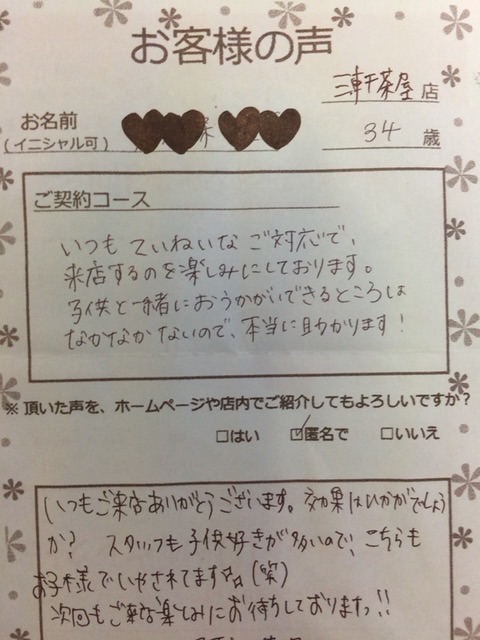 お客様の声
三軒茶屋 店
お名前
(イニシャル可)
34 歳
ご契約コース
いつもていねいなご対応で、
来店するのを楽しみにしております。
子供と一緒におうかがいできるところは
なかなかないので、本当に助かります!
※ 頂いた声を、ホームページや店内でご紹介してもよろしいですか?
□はい ☑匿名で □いいえ
いつもご来店ありがとうございます。効果はいかがでしょう
か? スタッフも子供好きが多いので、こちらも
お子様でいやされてます☆(笑)
次回もご来店楽しみにお待ちしておりますっ!!